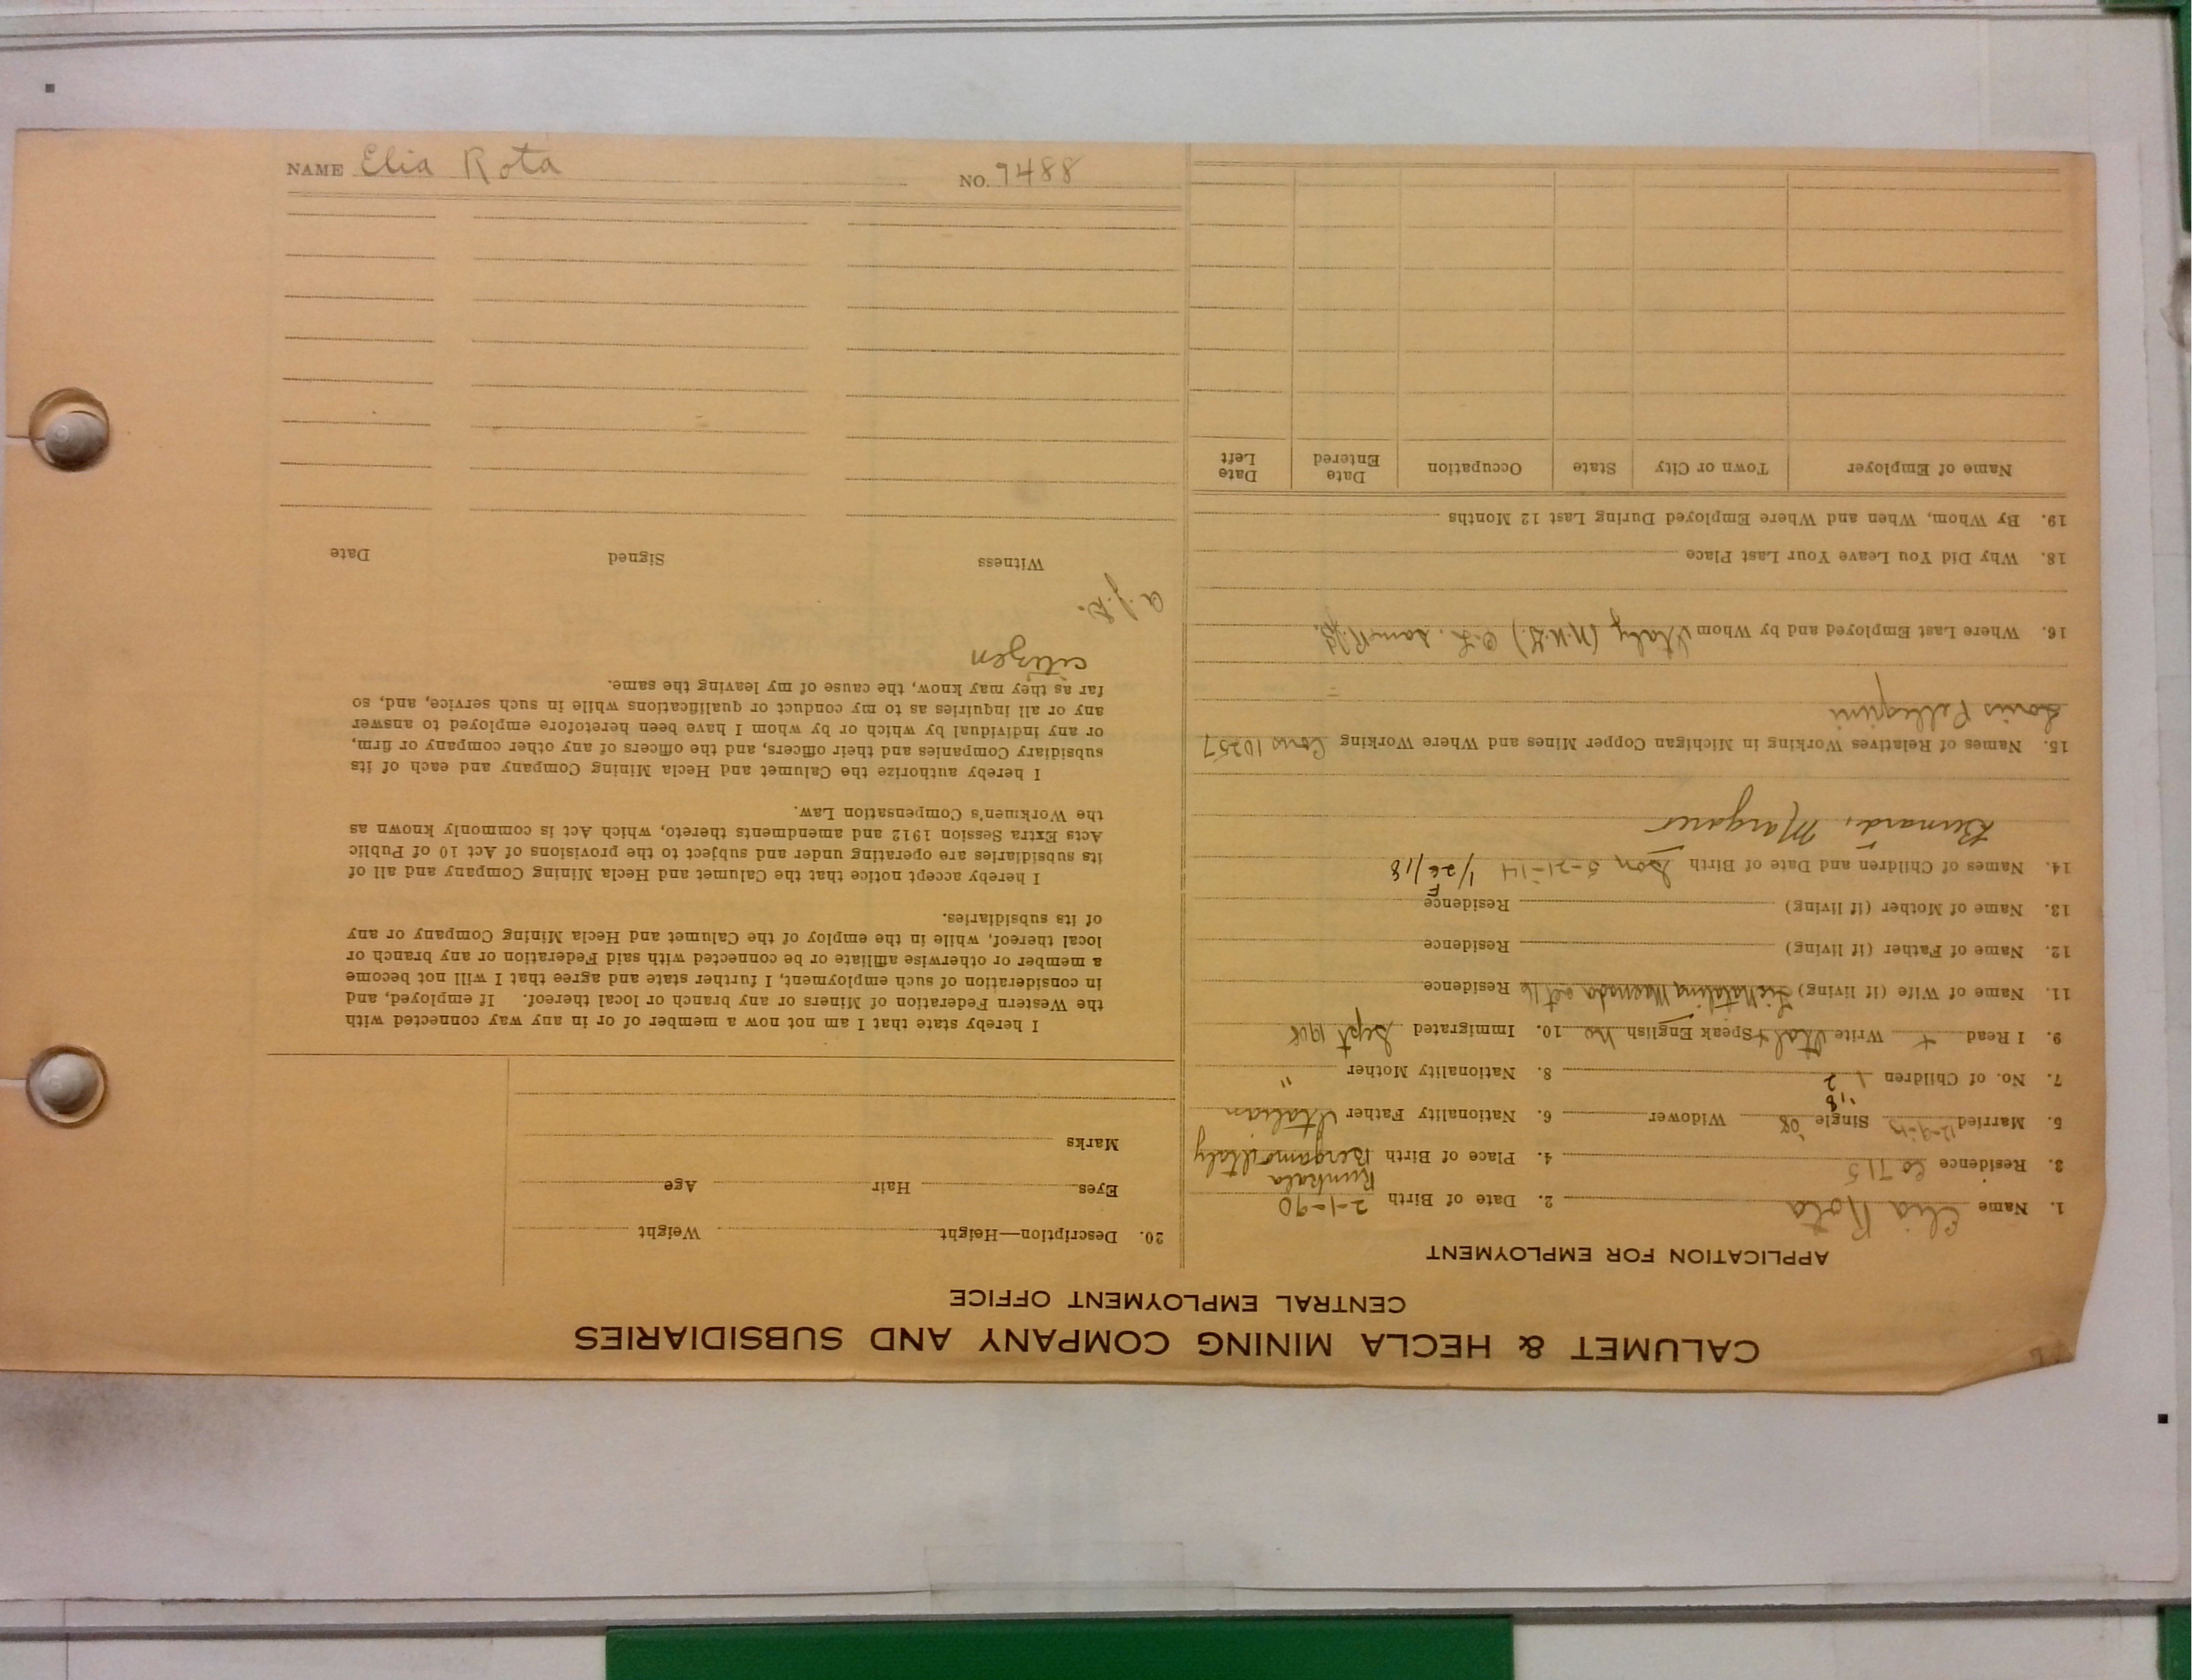 CALUMET & HECLA MINING COMPANY AND SUBSIDIARIES
CENTRAL EMPLOYMENT OFFICE
APPLICATION FOR EMPLOYMENT
1. Name Elia Rota 2. Date of Birth 2-1-90
3. Residence Co 715 4. Place of Birth Bergamo Italy
5. Married 12-9-13 Single '08 Widower 6. Nationality Father Italian
'18
7. No. of Children 1 2 8. Nationality Mother "
9. I Read + Write Ital + Speak English No 10. Immigrated Sept 1908
11. Name of Wife (if living) Residence
12. Name of Father (if living) Residence
13. Name of Mother (if living) Residence
F
14. Names of Children and Date of Birth Son 5-21-14 1/26/18
Bernard, Margaret
15. Names of Relatives Working in Michigan Copper Mines and Where Working Cous 10257
Louis Pellegrini
16. Where Last Employed and by Whom Italy
18. Why Did You Leave Your Last Place
19. By Whom, When and Where Employed During Last 12 Months
Name of Employer Town or City State Occupation Date Entered Date Left
20. Description—Height Weight
Eyes Hair Age
Marks
I hereby state that I am not now a member of or in any way connected with
the Western Federation of Miners or any branch or local thereof. If employed, and
in consideration of such employment, I further state and agree that I will not become
a member or otherwise affiliate or be connected with said Federation or any branch or
local thereof, while in the employ of the Calumet and Hecla Mining Company or any
of its subsidiaries.
I hereby accept notice that the Calumet and Hecla Mining Company and all of
its subsidiaries are operating under and subject to the provisions of Act 10 of Public
Acts Extra Session 1912 and amendments thereto, which Act is commonly known as
the Workmen's Compensation Law.
I hereby authorize the Calumet and Hecla Mining Company and each of its
subsidiary Companies and their officers, and the officers of any other company or firm,
or any individual by which or by whom I have been heretofore employed to answer
any or all inquiries as to my conduct or qualifications while in such service, and, so
far as they may know, the cause of my leaving the same.
citizen
Witness Signed Date
NAME Elia Rota NO. 7488